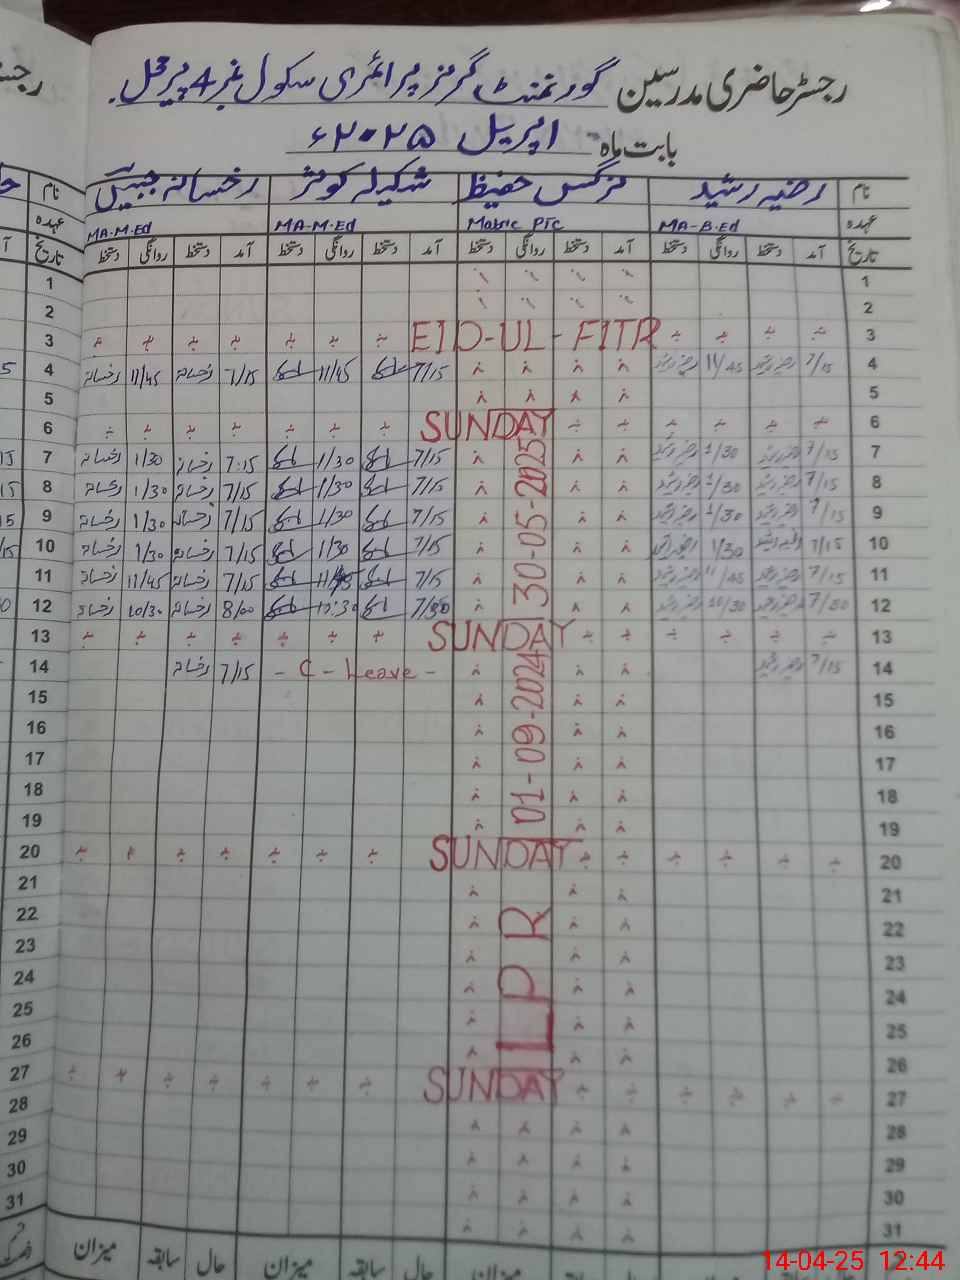 رجسٹر حاضری مدرسین گورنمنٹ گرلز پرائمری سکول نمبر 4 پیر محل
بابت ماہ اپریل ۲۰۲۵ء
نام رضیہ رشید نرگس حفیظ شکیلہ کوثر رخسانہ جبیں نام
عہدہ MA-B.Ed Matric PTC MA-M.Ed MA-M.Ed عہدہ
تاریخ آمد دستخط روانگی دستخط آمد دستخط روانگی دستخط آمد دستخط روانگی دستخط آمد دستخط روانگی دستخط تاریخ
1 1
2 2
3 EID-UL-FITR 3
4 رخسانہ 11/45 رخسانہ 7/15 11/45 7/15 11/45 7/15 4
5 5
6 SUNDAY 6
7 رخسانہ 1/30 رخسانہ 7:15 1/30 7/15 1/30 7/15 7
8 رخسانہ 1/30 رخسانہ 7/15 1/30 7/15 1/30 7/15 8
9 رخسانہ 1/30 رخسانہ 7/15 1/30 7/15 1/30 7/15 9
10 رخسانہ 1/30 رخسانہ 7/15 1/30 7/15 1/30 7/15 10
11 رخسانہ 11/45 رخسانہ 7/15 11/45 7/15 11/45 7/15 11
12 رخسانہ 10/30 رخسانہ 8/00 10:30 7/30 10/30 7/30 12
13 SUNDAY 13
14 رخسانہ 7/15 - C - Leave - 7/15 14
15 15
16 16
17 17
18 18
19 19
20 SUNDAY 20
21 21
22 22
23 23
24 24
25 25
26 26
27 SUNDAY 27
28 28
29 29
30 30
31 31
LPR 01-09-2024 30-05-2025
میزان سابقہ حال میزان سابقہ حال میزان
14-04-25 12:44